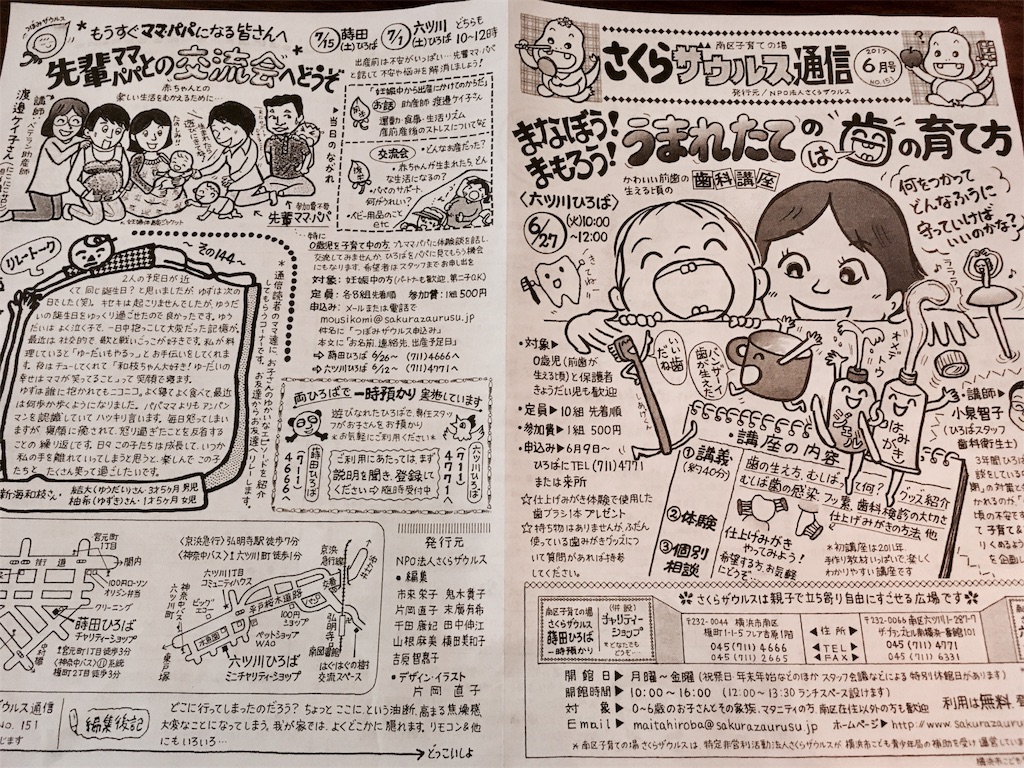 つぼみザウルス
もうすぐママ・パパになる皆さんへ
先輩ママパパとの交流会へどうぞ
赤ちゃんとの
楽しい生活をむかえるために…
7/15(土)蒔田ひろば
7/1(土)六ツ川ひろば
どちらも
10〜12時
出産前は不安がいっぱい…先輩ママパパ
と話して不安や悩みを解消しましょう!
講師
ベテラン助産師
渡邉ケイ子さん
先輩ママパパ
参加費不要
▶当日のながれ
「妊娠中から出産にかけてのからだ」
お話 助産師 渡邉ケイ子さん
運動・食事・生活リズム
産前産後のストレスについてなど
交流会
・どんなお産だった?
・赤ちゃんが生まれたら、どん
な生活になるの?
・パパのサポート、
何がうれしい?
・ベビー用品のこと
etc
特に
0歳児を子育て中の方 プレママパパに体験談を話し、
交流してみませんか。ひろばをパパに見てもらう機会
にもなります。希望者はスタッフまでお申し出を
対象:妊娠中の方(パートナーも歓迎、第二子OK)
定員:各8組先着順 参加賞:1組500円
申込み:メールまたは電話で
mousikomi@sakurazaurusu.jp
件名に「つぼみザウルス申込み」
本文に「お名前、連絡先、出産予定日」
⇨蒔田ひろば 6/26〜(711)4666へ
⇨六ツ川ひろば 6/12〜(711)4771へ
リレートーク
〜その144〜
*通信読者のママ達に、お子さんのゆかいなエピソードを紹介
してもらうコーナーです。お友達からお友達へリレーします。
2人の予定日が近
くて同じ誕生日?と思いましたが、ゆずは次の
日でした(笑)。キセキは起こりませんでしたが、ゆうだ
いの誕生日をゆっくり過ごせたので良かったです。ゆう
だいはよく泣く子で、一日中抱っこして大変だった記憶が。
最近は社交的で、歌と戦いごっこが好きです。私が料
理していると「ゆーだいもやるっ」とお手伝いをしてくれま
す。夜はチューしてくれて「和枝ちゃん大好き!ゆーだいの
幸せはママが笑ってること」って笑顔で寝ます。
ゆずは誰に抱かれてもニコニコ。よく寝てよく食べて最近
は何歩か歩くようになりました。パパママよりもアンパン
マンを認識していてハッキリ言います。毎日怒ってしまい
ますが、寝顔に癒されて、怒り過ぎたことを反省する
ことの繰り返しです。日々この子たちは成長して、いつか
私の手を離れていってしまうと思うと、楽しんでこの子
たちとたくさん笑って過ごしたいです。
新海和枝さん
結大(ゆうだい)さん:3才5ヶ月 男児
柚希(ゆずき)さん:1才5ヶ月 女児
両ひろばで一時預かり実施しています
遊びなれたひろばで、専任スタッ
フがお子さんをお預かり
*お気軽にご利用ください*
(711)4666へ
蒔田ひろば
ご利用にあたっては、まず
説明を聞き、登録して
ください⇨随時受付中
(711)4771へ
六ツ川ひろば
宮元町1丁目
関内
100円ローソン
オリジン弁当
クリーニング
蒔田ひろば
チャリティーショップ
〈神奈中バス〉⑪系統
睦町2丁目 徒歩3分
〈京浜急行〉弘明寺駅徒歩7分
〈神奈中バス〉I 六ツ川町 徒歩1分
六ツ川1丁目
コミュニティハウス
ビッグエコー
平戸桜木道路
100円ショップ
ペットショップ
WAO
六ツ川ひろば
ミニチャリティーショップ
東戸塚
京浜急行線
弘明寺
南図書館
はぐはぐの樹
交流スペース
発行元
NPO法人さくらザウルス
・編集
市来栄子 鬼木貴子
片岡直子 末廣有希
千田康妃 田中伸江
山根麻美 横田美和子
吉原智嘉子
・デザイン・イラスト
片岡直子
ウルス通信
No.151
編集後記
どこに行ってしまったのだろう?ちょっとここに、という油断、高まる焦燥感、
大変なことになってしまう。我が家では、よくどこかに隠れます。リモコン&他
にもいろいろ…
→どっこいしょ
南区子育ての場
さくらザウルス通信
発行元/NPO法人さくらザウルス
2017
6月号
NO.151
まなぼう!まもろう!
うまれたての歯の育て方
は
かわいい前歯の
生える頃の
歯科講座
〈六ツ川ひろば〉
6/27(火)10:00
〜12:00
何をつかって
どんなふうに
守っていけば
いいのかな?
きてね!
ラララ
▪対象▶
0歳児(前歯が
生える頃)と保護者
きょうだい児も歓迎
▪定員▶10組 先着順
▪参加賞▶1組500円
▪申込み▶6月9日〜
ひろばにTEL(711)4771
または来所
☆仕上げみがき体験で使用した
歯ブラシ1本プレゼント
☆持ち物はありませんが、ふだん
使っている歯みがきグッズにつ
いて質問があれば持参
してください。
しあげ
だいじな歯
バンザーイ
歯が生えた
ジェル
はみがき
・講座の内容
①講義
(約40分)
歯の生え方、むし歯って何?
むし歯の感染 フッ素 歯科検診の大切さ
仕上げみがきの方法 他
グッズ紹介
②体験
仕上げみがき
やってみよう!
③個別相談
希望する方、お気軽
にどうぞ
*初講座は2011年。
手作り教材いっぱいで、楽しく
わかりやすい講座です
・講師▶
小泉智子
(ひろばスタッフ
歯科衛生士)
さくらザウルスは親子で立ち寄り自由にすごせる広場です
南区子育ての場
さくらザウルス
蒔田ひろば
一時預かり
(併設)
チャリティーショップ
〒232-0044 横浜市南区
睦町1-1-5フレア吉原1階
045(711)4666
045(711)2665
◀住所▶
◀TEL▶
◀FAX▶
〒232-0066 南区六ツ川1-287-7
ザ・プランヴェル南横浜一番館101
045(711)4771
045(711)6331
開館日▶月曜〜金曜(祝祭日 年末年始などのほか スタッフ会議などによる 特別休館日があります)
開館時間▶10:00〜16:00 (12:00〜13:30 ランチスペース設けます)
対象▶0〜6歳のお子さんとその家族、マタニティの方、南区在住以外の方も歓迎
利用は無料、登
Email▶maitahiroba@sakurazaurusu.jp ホームページ▶http://www.sakurazauru
*南区子育ての場 さくらザウルスは、特定非営利活動法人さくらザウルスが 横浜市こども青少年局の補助を受け 運営してい
横浜市こども